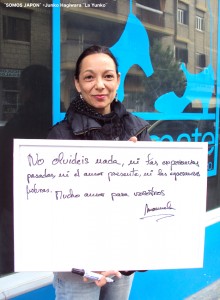 "SOMOS JAPON" - Junko Hagiwara "La Yunko"
No olvideis nada, ni las experiencias
pasadas, ni el amor presente, ni las esperanzas
futuras. Mucho amor para vosotros